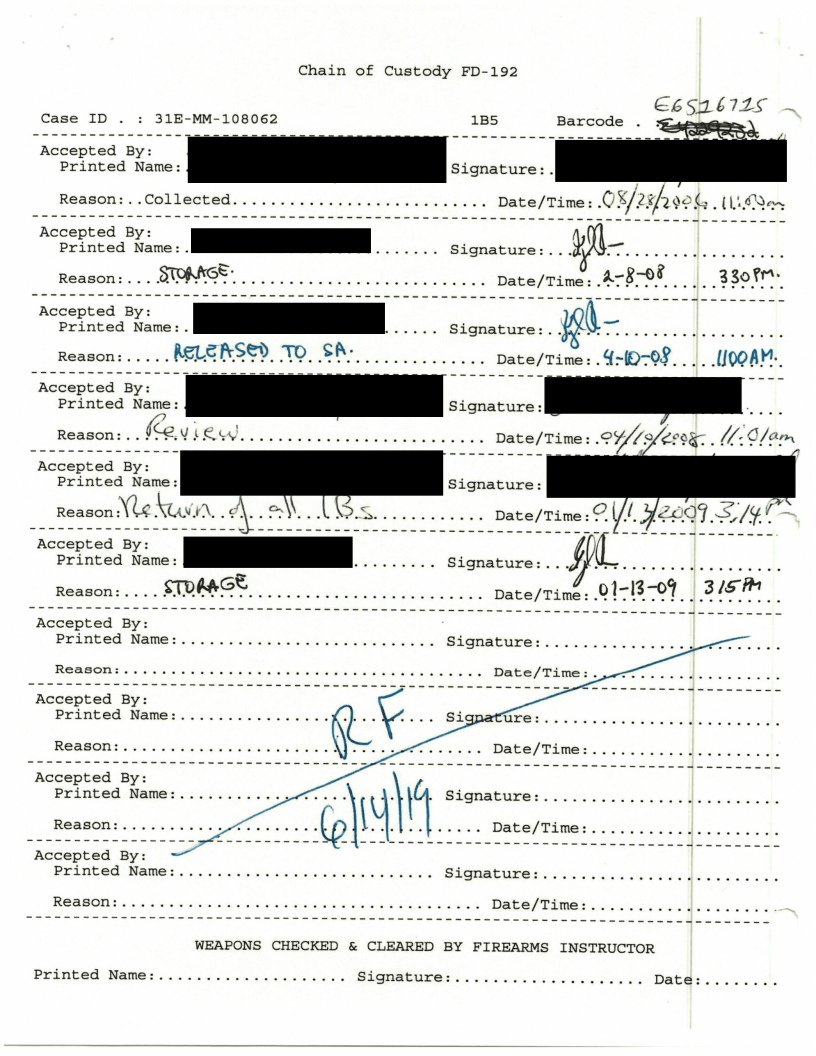 Chain of Custody FD-192
E6516715
Case ID . : 31E-MM-108062 1B5 Barcode .
Accepted By:
Printed Name: Signature:.
Reason:..Collected........................... Date/Time:.08/28/2006..11:00am
Accepted By:
Printed Name:. ....... Signature:...
Reason:....STORAGE. Date/Time:.2-8-08 330 PM.
Accepted By:
Printed Name:. ...... Signature:..
Reason:.....RELEASED TO SA. Date/Time:.4-10-08 1100 AM.
Accepted By:
Printed Name: Signature:
Reason:..Review Date/Time:.04/10/2008..11:01am
Accepted By:
Printed Name: Signature:
Reason: Return of all 1Bs Date/Time: 01/13/2009 3:14 PM
Accepted By:
Printed Name: ......... Signature:...
Reason:....STORAGE Date/Time:.01-13-09 315 PM
Accepted By:
Printed Name:........................... Signature:.........................
Reason:...................................... Date/Time:....................
Accepted By:
Printed Name:........................... Signature:.........................
RF
Reason:...................................... Date/Time:....................
Accepted By:
Printed Name:........................... Signature:.........................
6/14/19
Reason:...................................... Date/Time:....................
Accepted By:
Printed Name:........................... Signature:.........................
Reason:...................................... Date/Time:....................
WEAPONS CHECKED & CLEARED BY FIREARMS INSTRUCTOR
Printed Name:.................... Signature:.................... Date:........